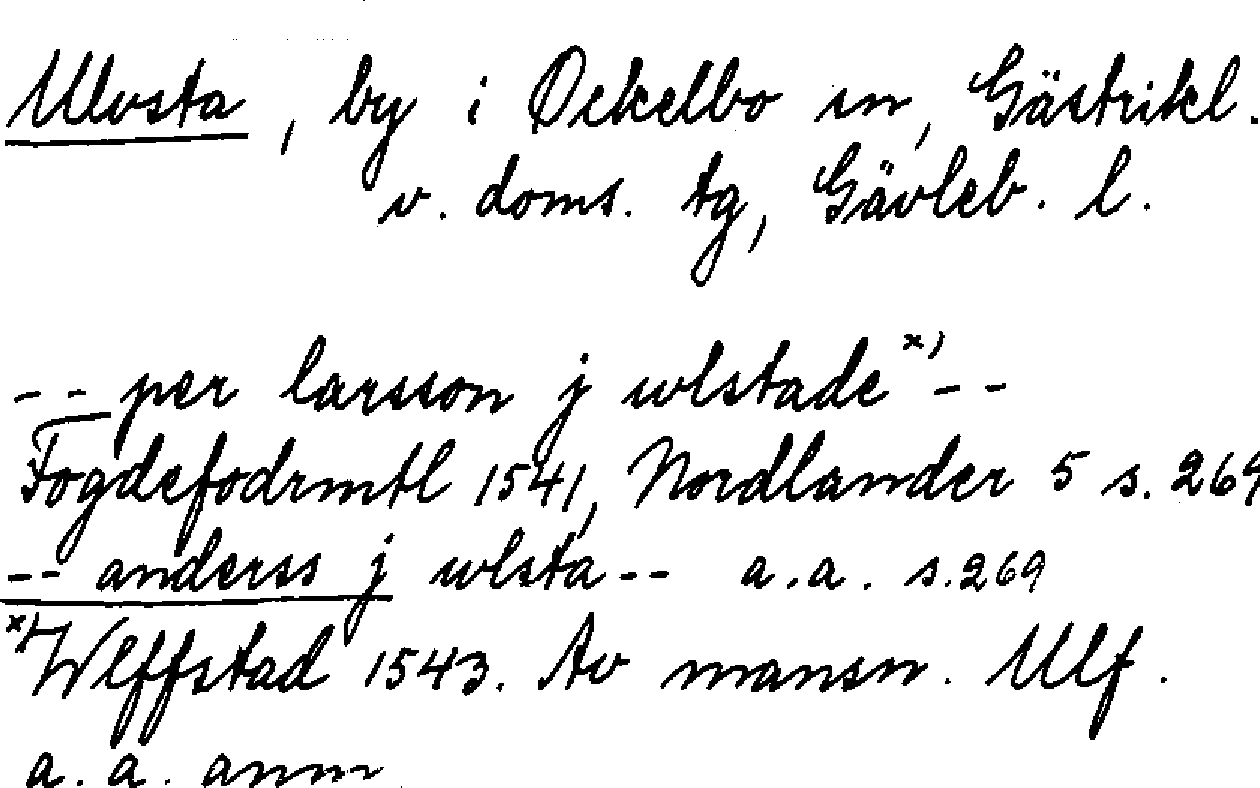 Ulvsta, by i Ockelbo sn, Gästrikl.
v. doms. tg, Gävleb. l.
-- per larsson j wlstade x) --
Fogdefodrmtl 1541, Nordlander 5 s. 269
-- anderss j wlsta -- a.a. s.269
x) Wlffstad 1543. Av mansn. Ulf.
a.a. anm